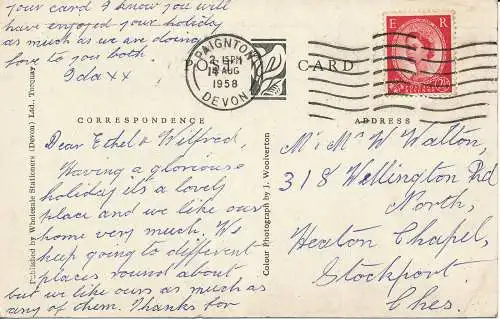 Dear Ethel & Wilfred,
Having a gloriouse
holiday its a lovely
place and we like our
home very much. We
keep going to different
places round about
but we like ours as much as
any of them. Thanks for
your card I know you will
have enjoyed your holiday
as much as we are doing
love to you both.
Ida xx
PAIGNTON
2-15PM
AUG
1958
DEVON
CARD
E R
CORRESPONDENCE
ADDRESS
Mr & Mrs W Walton,
318 Wellington Rd
North,
Heaton Chapel,
Stockport
Ches.
Published by Wholesale Stationers (Devon) Ltd., Torquay
Colour Photograph by J. Woolverton